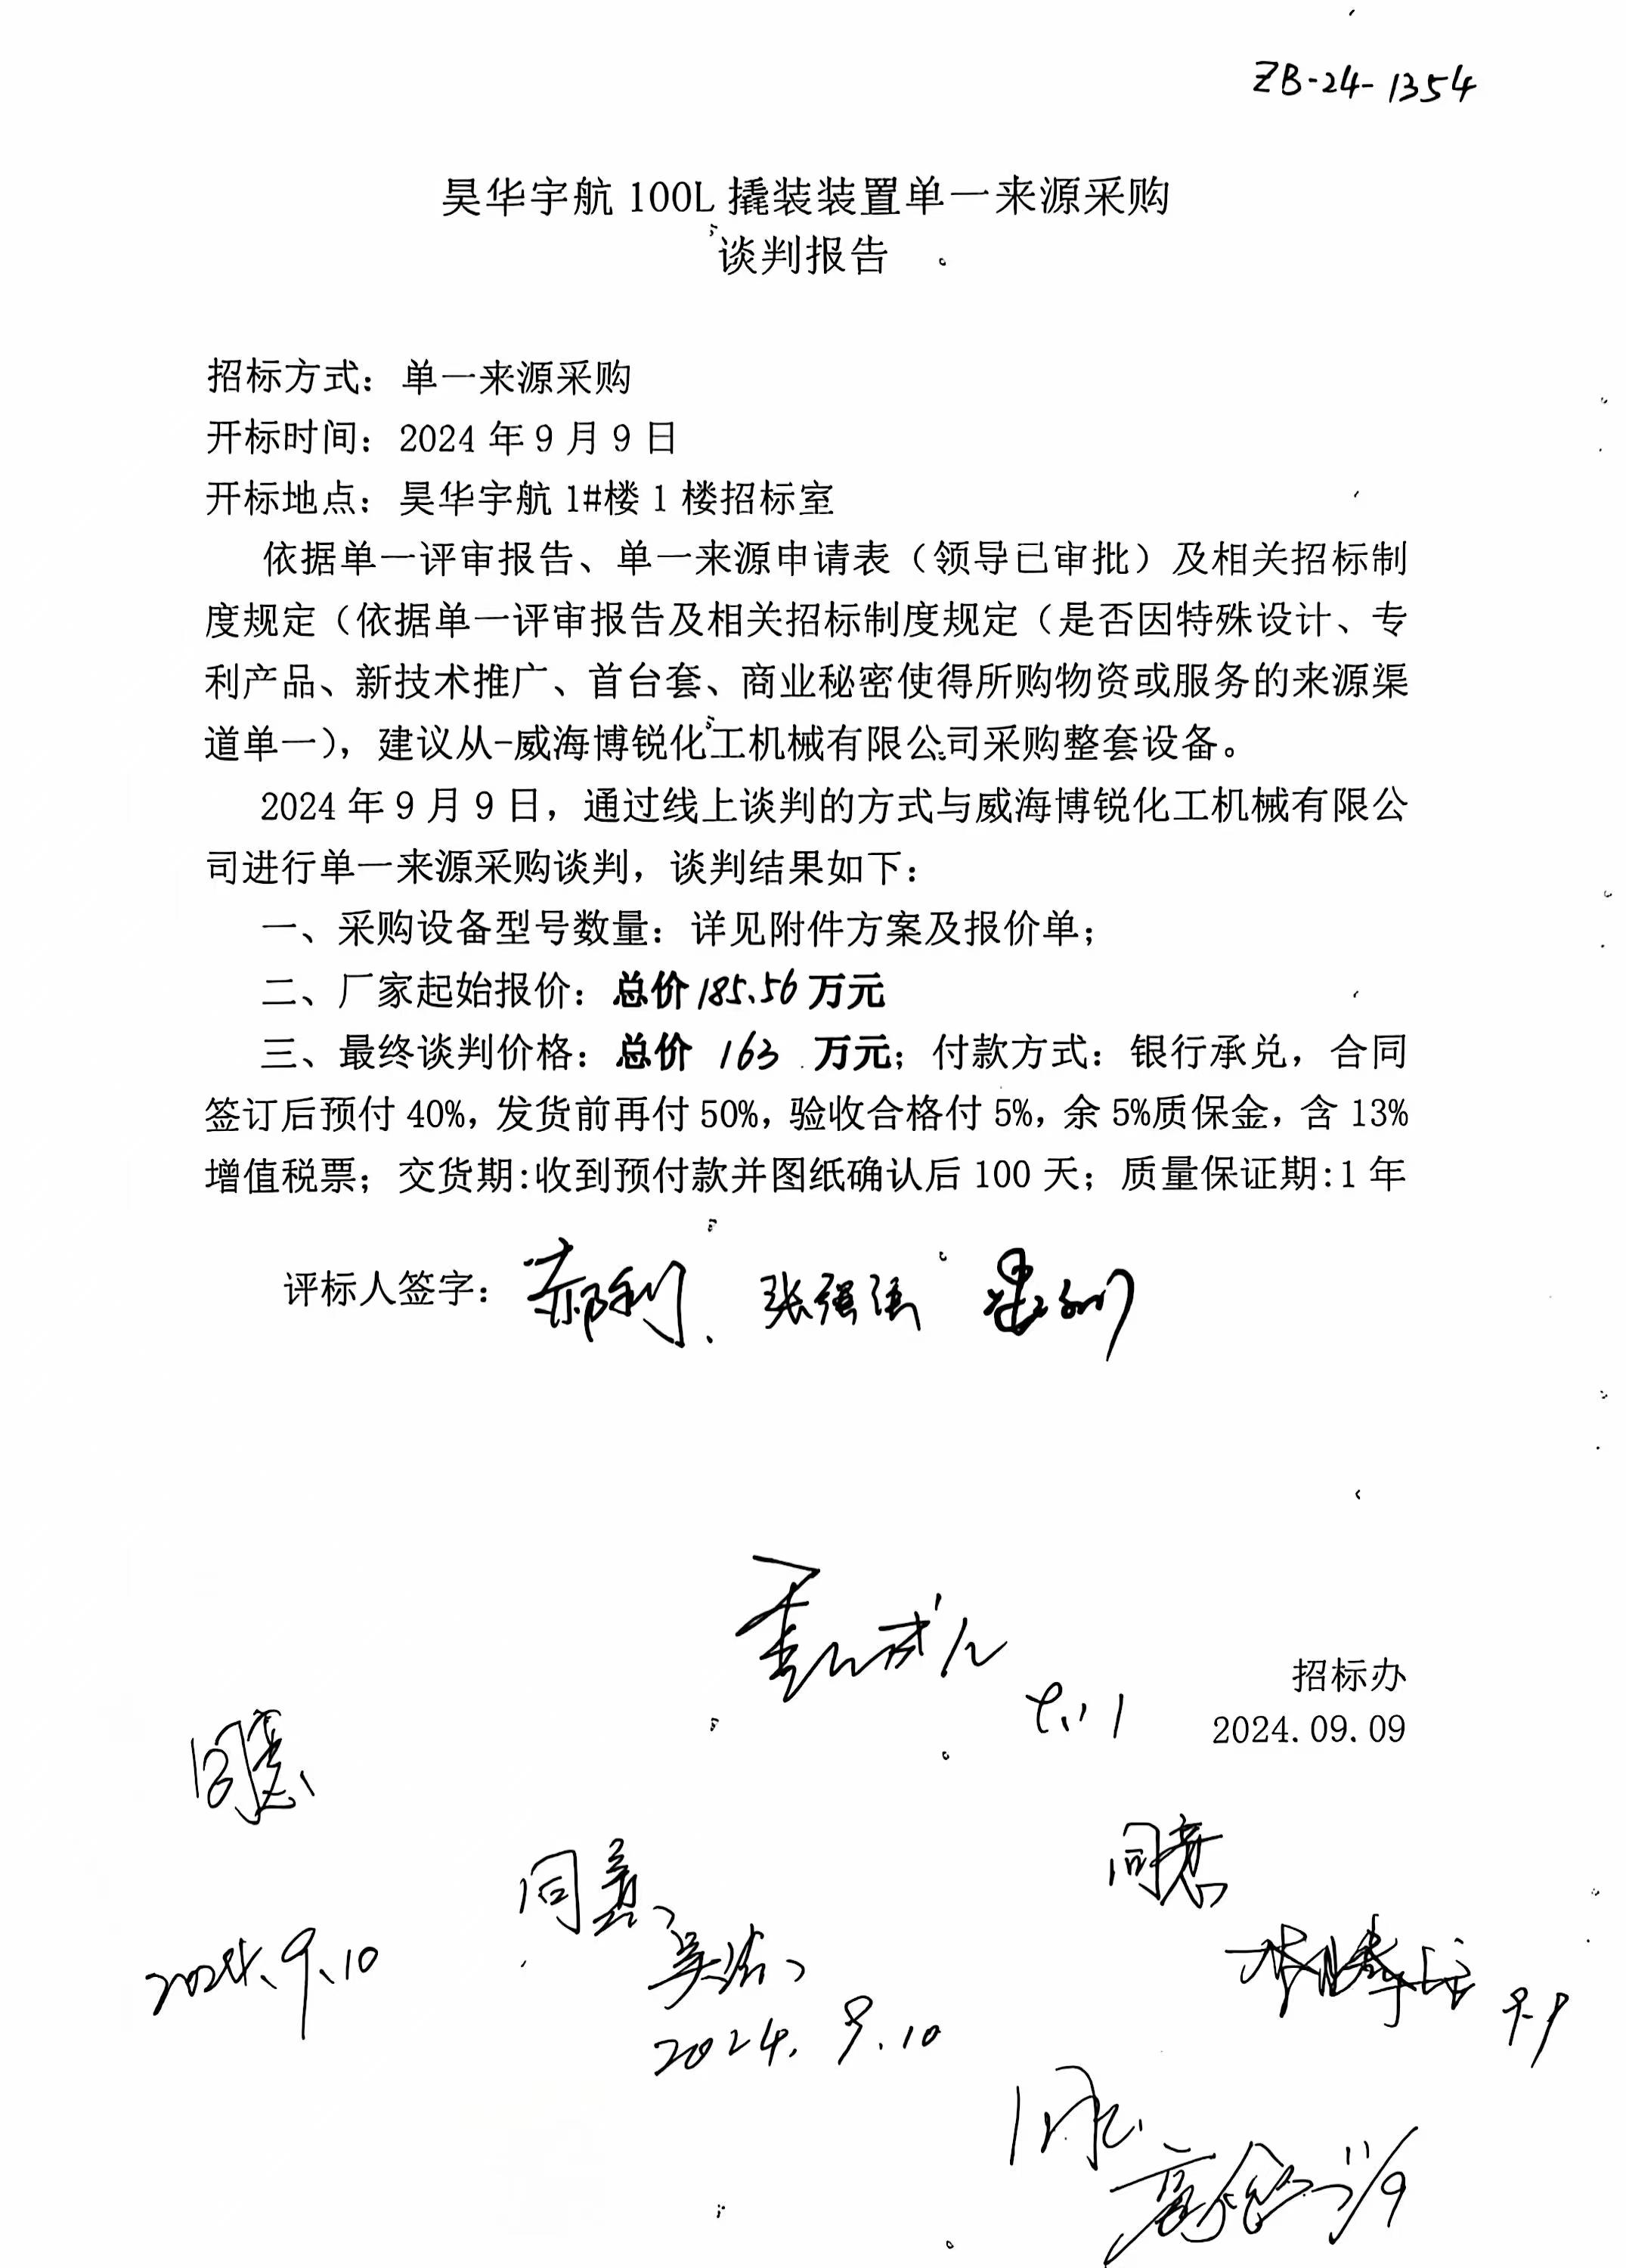 ZB-24-1354
昊华宇航 100L 撬装装置单一来源采购
谈判报告
招标方式：单一来源采购
开标时间：2024 年 9 月 9 日
开标地点：昊华宇航 1#楼 1 楼招标室
依据单一评审报告、单一来源申请表（领导已审批）及相关招标制
度规定（依据单一评审报告及相关招标制度规定（是否因特殊设计、专
利产品、新技术推广、首台套、商业秘密使得所购物资或服务的来源渠
道单一），建议从-威海博锐化工机械有限公司采购整套设备。
2024 年 9 月 9 日，通过线上谈判的方式与威海博锐化工机械有限公
司进行单一来源采购谈判，谈判结果如下：
一、采购设备型号数量：详见附件方案及报价单；
二、厂家起始报价：总价 185.56 万元
三、最终谈判价格：总价 163 万元；付款方式：银行承兑，合同
签订后预付 40%，发货前再付 50%，验收合格付 5%，余 5%质保金，含 13%
增值税票；交货期:收到预付款并图纸确认后 100 天；质量保证期:1 年
评标人签字： 郝利 张强强
招标办
2024.09.09
同意
同意
同意
2024.9.10
2024.9.10
9-9
同意